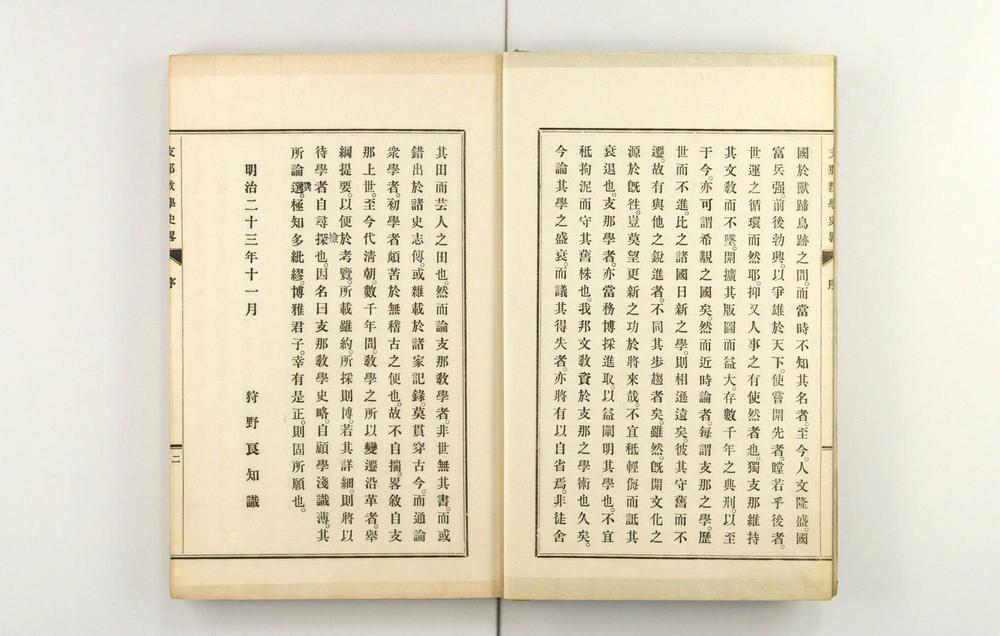 支那教學史畧
序
國於獸蹄鳥跡之間。而當時不知其名者。至今。人文隆盛。國
富兵强前後勃興。以爭雄於天下。使嘗開先者。瞠若乎後者。
世運之循環而然耶。抑又人事之有使然者也。獨支那維持
其文敎而不墜。開擴其版圖而益大。存數千年之典刑。以至
于今。亦可謂希覯之國矣。然而近時論者。每謂支那之學。歷
世而不進。比之諸國日新之學。則相遜遠矣。彼其守舊而不
遷。故有與他之銳進者。不同其步趨者矣。雖然。旣開文化之
源於旣徃。豈莫望更新之功於將來哉。不宜秪輕侮而詆其
衰退也。支那學者。亦當務博採進取。以益闡明其學也。不宜
秪拘泥而守其舊株也。我邦文敎資於支那之學術也久矣。
今論其學之盛衰。而議其得失者。亦將有以自省焉。非徒舍
其田而芸人之田也。然而論支那敎學者。非世無其書。而或
錯出於諸史志傳。或雜載於諸家記錄。莫貫穿古今。而通論
衆學者。初學者頗苦於無稽古之便也。故不自揣。畧敘自支
那上世。至今代清朝數千年間。敎學之所以變遷沿革者。舉
綱提要。以便於考覽。所載雖約。所採則博。若其詳細。則將以
待學者自尋探也。因名曰支那敎學史略。自顧學淺識薄。其
所論選。極知多紕繆。博雅君子。幸有是正。則固所願也。
明治二十三年十一月
狩野良知識
支那敎學史畧
序
二